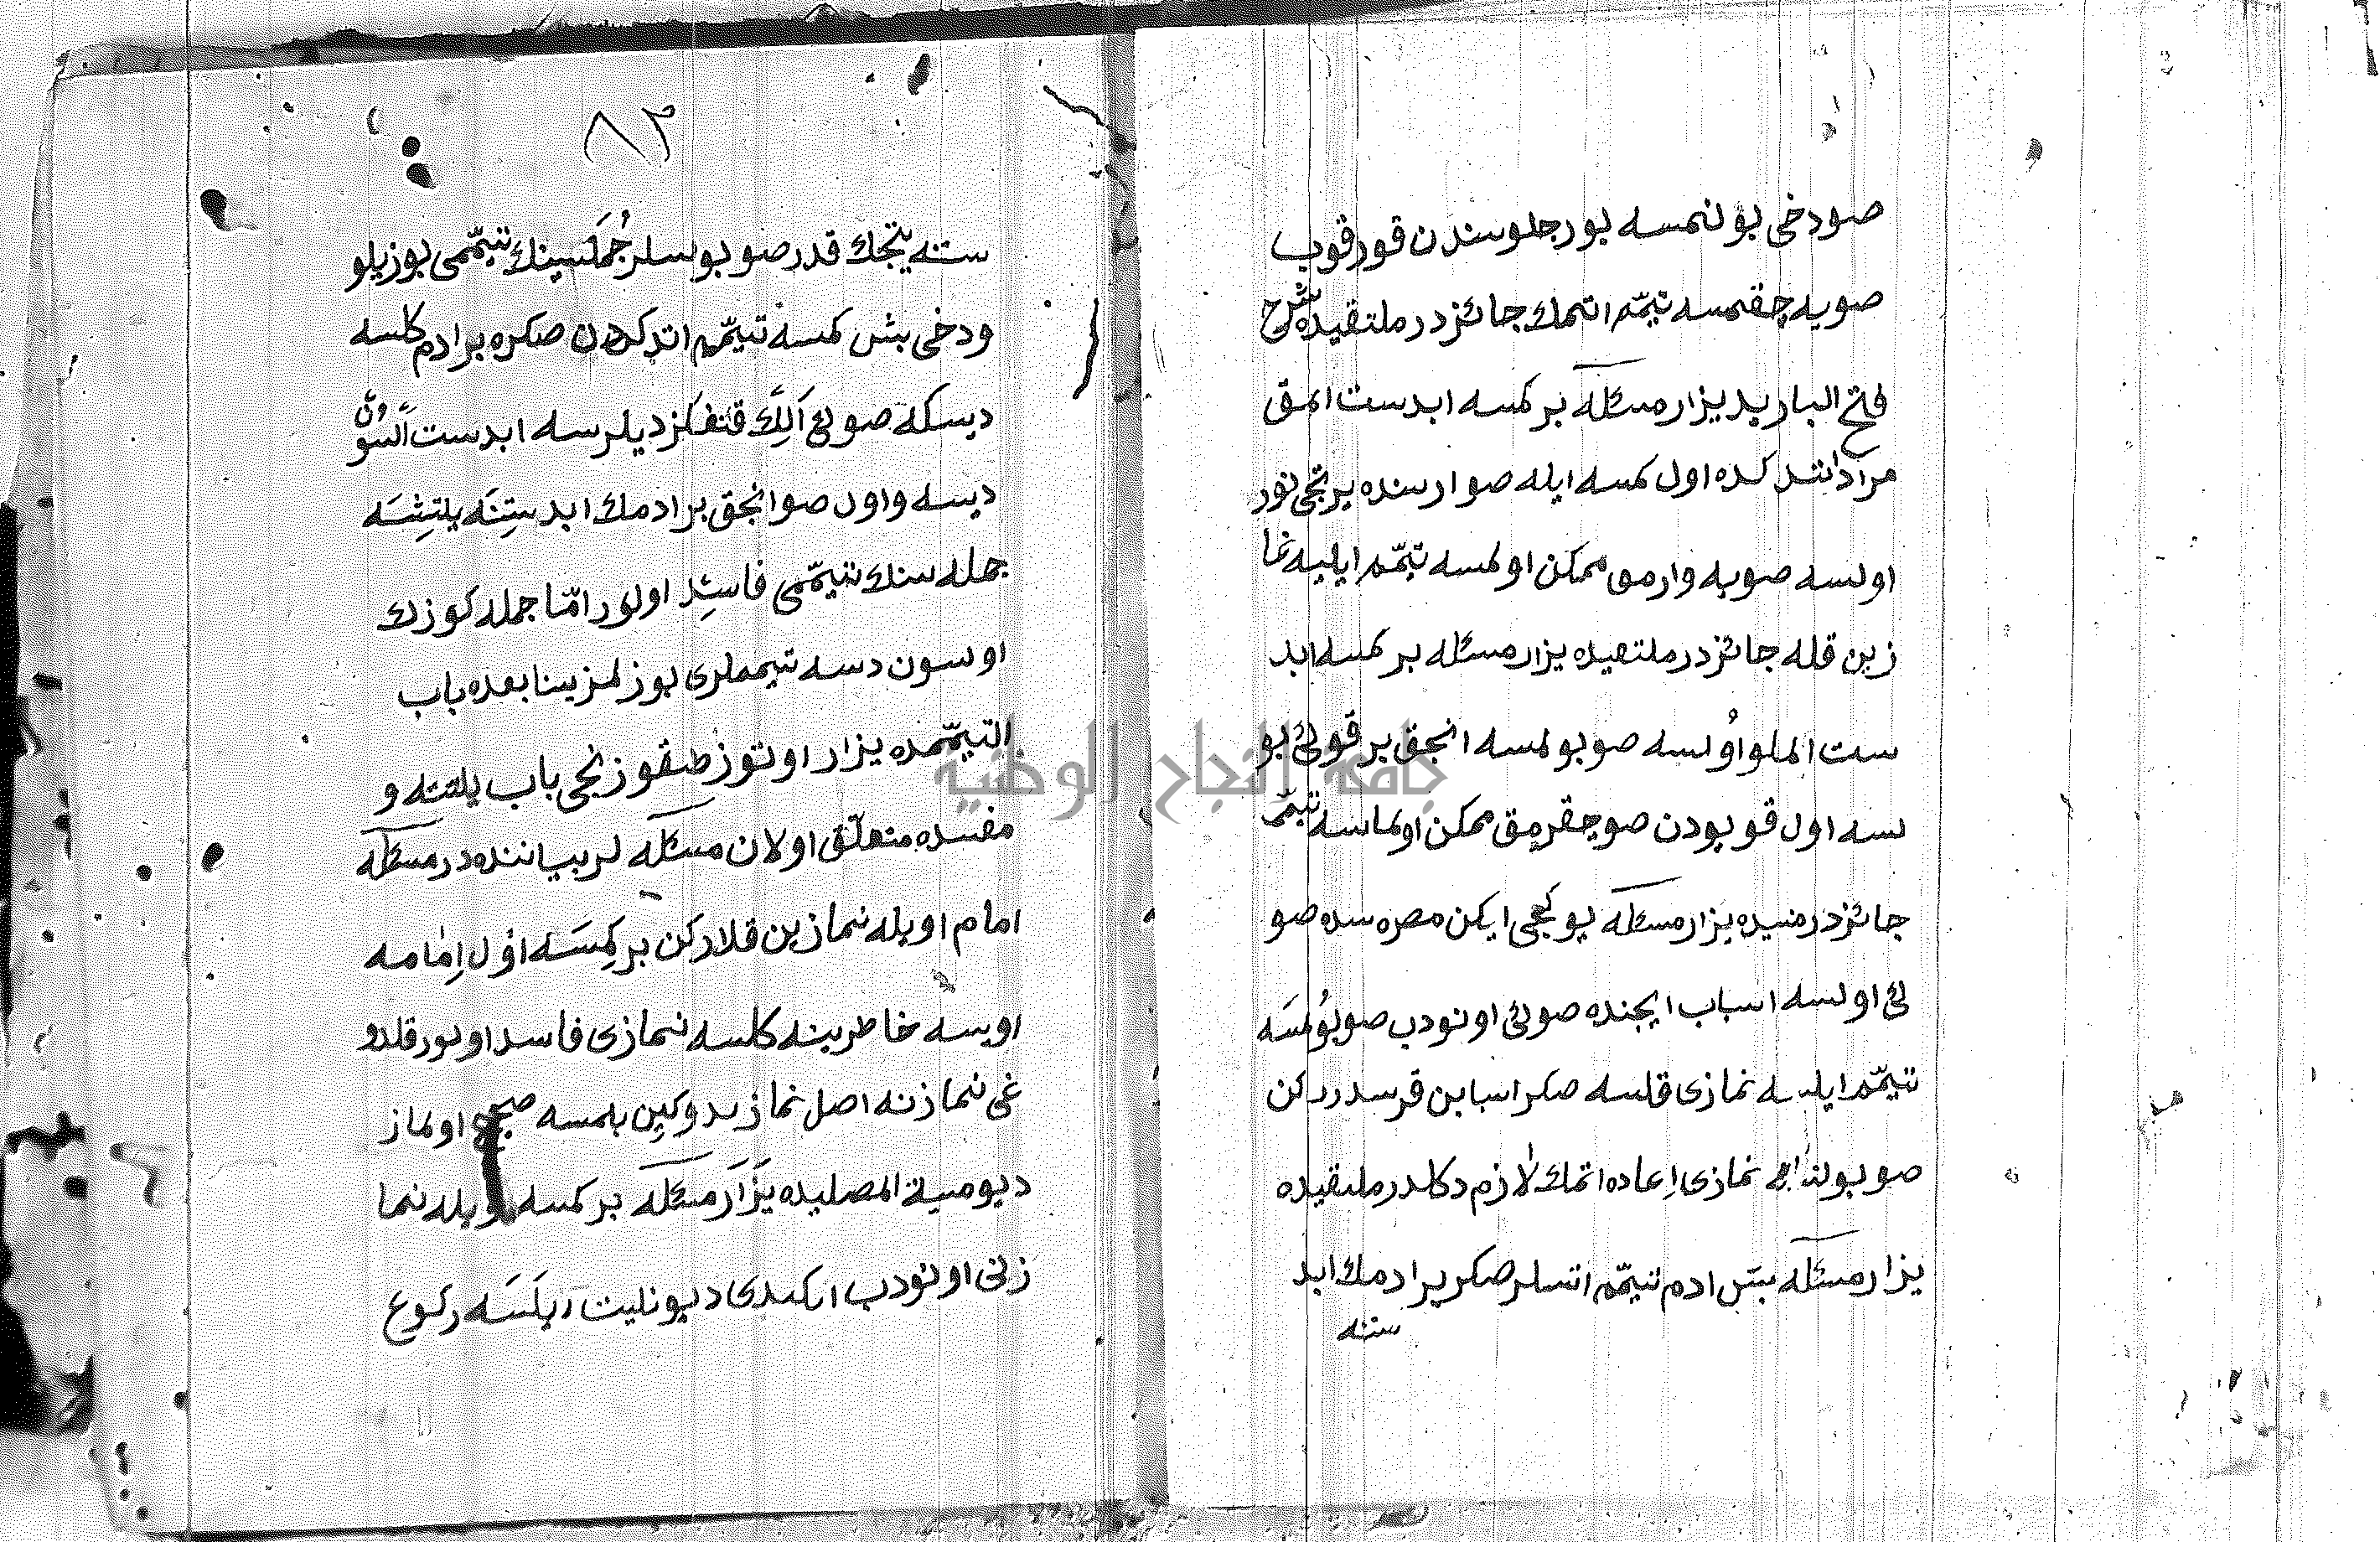 صودخى بولنمسه بورجلوسندن قورقوب
صويه چقمسه تيمّم اتمك جائزدر ملتقيده شرح
فتح الباريد يزار مسئله بر كمسه ابدست المق
مراد اتدكده اول كمسه ايله صو ارسنده برتجى نور
اولسه صويه وارمى ممكن اولمسه تيمّم ايليه نما
زين قله جائزدر ملتقيده يزار مسئله بر كمسه ابد
ست الملو اولسه صو بولمسه انجق بر قولئ بو
لسه اول قويودن صو چقرمق ممكن اولماسه تيمّم
جائزدر منيده يزار مسئله يوكجى ايكن مصره سده صو
لئ اولسه اسباب ايجنده صولئ اونودب صو بولمسه
تيمّم ايلسه نمازى قلسه صكر اسبابن قرسدرركن
صو بولند نمازى اعاده اتمك لازم دكلدر ملتقيده
يزار مسئله بش ادم تيمّم اتسلر صكر بر ادمك ابد
ستنه
٨٣
ستنه يتجك قدر صو بولسلر جملسينك تيمّمى بوزيلو
ودخى بش كمسه تيمّم اتدكدن صكره بر ادم كلسه
ديسكه صولئ اللك قنفكز ديلرسه ابدست السون
ديسه واول صو انجق بر ادمك ابدستنه يلتشسه
جمله سنك تيمّمى فاسد اولور امّا جمله كوزك
اوسون دسه تيمملرى بوزلمز ينابعده باب
التيمّمده يزار اوتوز طقوزنجى باب يلتنه و
مفسده متعلّق اولان مسئله لر بياننده در مسئله
امام اويله نمازين قلاركن بر كمسه اول امامه
اويسه خاطرينه كلسه نمازى فاسد اولور قلدو
غى نمازنه اصل نماز يدوكين بلمسه صحيح اولماز
ديو منية المصليده يزار مسئله بر كمسه اويله نما
زنى اونودب اركندى ديو نليت ايلسه ركوع